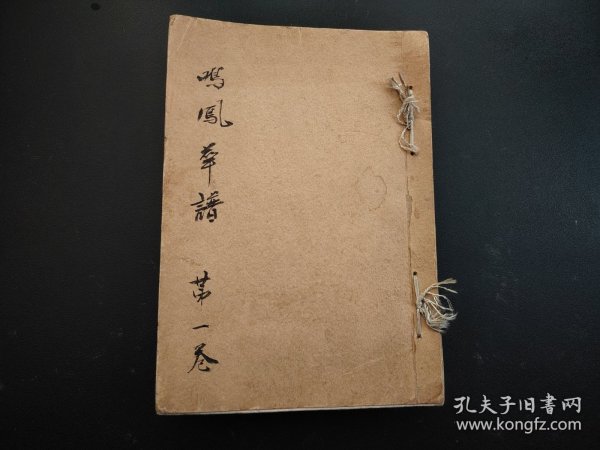 鸣凤琴譜 第一卷
孔夫子旧書网
www.kongfz.com